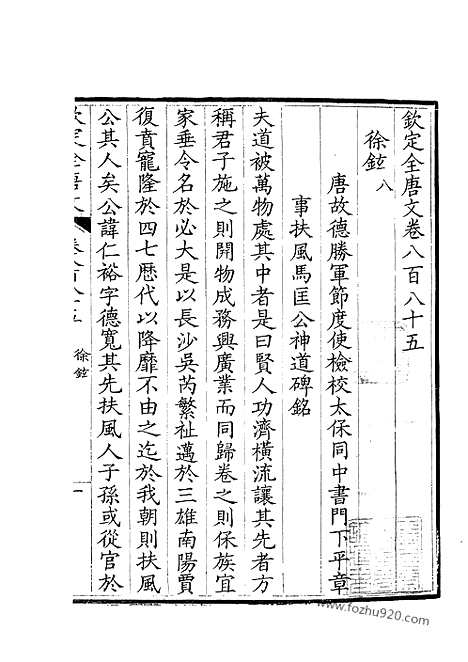 欽定全唐文卷八百八十五
徐鉉八
唐故德勝軍節度使檢校太保同中書門下平章
事扶風馬匡公神道碑銘
夫道被萬物處其中者是曰賢人功濟橫流讓其先者方
稱君子施之則開物成務興廣業而同歸卷之則保族宜
家垂令名於必大是以長沙吳芮繁祉邁於三雄南陽賈
復賁寵隆於四七歷代以降靡不由之迄於我朝則扶風
公其人矣公諱仁裕字德寬其先扶風人子孫或從官於
欽定全唐文 卷八百八十五 徐鉉 一
www.fozhu920.com